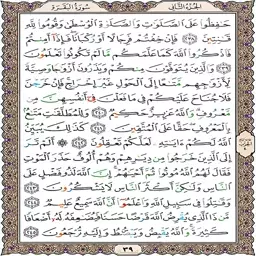 الجزء الثاني سورة البقرة
حَٰفِظُوا۟ عَلَى ٱلصَّلَوَٰتِ وَٱلصَّلَوٰةِ ٱلْوُسْطَىٰ وَقُومُوا۟ لِلَّهِ
قَٰنِتِينَ ٢٣٨ فَإِنْ خِفْتُمْ فَرِجَالًا أَوْ رُكْبَانًا فَإِذَآ أَمِنتُمْ
فَٱذْكُرُوا۟ ٱللَّهَ كَمَا عَلَّمَكُم مَّا لَمْ تَكُونُوا۟ تَعْلَمُونَ
٢٣٩ وَٱلَّذِينَ يُتَوَفَّوْنَ مِنكُمْ وَيَذَرُونَ أَزْوَٰجًا وَصِيَّةً
لِّأَزْوَٰجِهِم مَّتَٰعًا إِلَى ٱلْحَوْلِ غَيْرَ إِخْرَاجٍ فَإِنْ خَرَجْنَ
فَلَا جُنَاحَ عَلَيْكُمْ فِى مَا فَعَلْنَ فِىٓ أَنفُسِهِنَّ مِن
مَّعْرُوفٍ وَٱللَّهُ عَزِيزٌ حَكِيمٌ ٢٤٠ وَلِلْمُطَلَّقَٰتِ مَتَٰعٌۢ
بِٱلْمَعْرُوفِ حَقًّا عَلَى ٱلْمُتَّقِينَ ٢٤١ كَذَٰلِكَ يُبَيِّنُ
ٱللَّهُ لَكُمْ ءَايَٰتِهِۦ لَعَلَّكُمْ تَعْقِلُونَ ٢٤٢ أَلَمْ تَرَ
إِلَى ٱلَّذِينَ خَرَجُوا۟ مِن دِيَٰرِهِمْ وَهُمْ أُلُوفٌ حَذَرَ ٱلْمَوْتِ
فَقَالَ لَهُمُ ٱللَّهُ مُوتُوا۟ ثُمَّ أَحْيَٰهُمْ إِنَّ ٱللَّهَ لَذُو فَضْلٍ عَلَى
ٱلنَّاسِ وَلَٰكِنَّ أَكْثَرَ ٱلنَّاسِ لَا يَشْكُرُونَ ٢٤٣
وَقَٰتِلُوا۟ فِى سَبِيلِ ٱللَّهِ وَٱعْلَمُوٓا۟ أَنَّ ٱللَّهَ سَمِيعٌ عَلِيمٌ ٢٤٤
مَّن ذَا ٱلَّذِى يُقْرِضُ ٱللَّهَ قَرْضًا حَسَنًا فَيُضَٰعِفَهُۥ لَهُۥٓ أَضْعَافًا
كَثِيرَةً وَٱللَّهُ يَقْبِضُ وَيَبْصُۜطُ وَإِلَيْهِ تُرْجَعُونَ ٢٤٥
٣٩